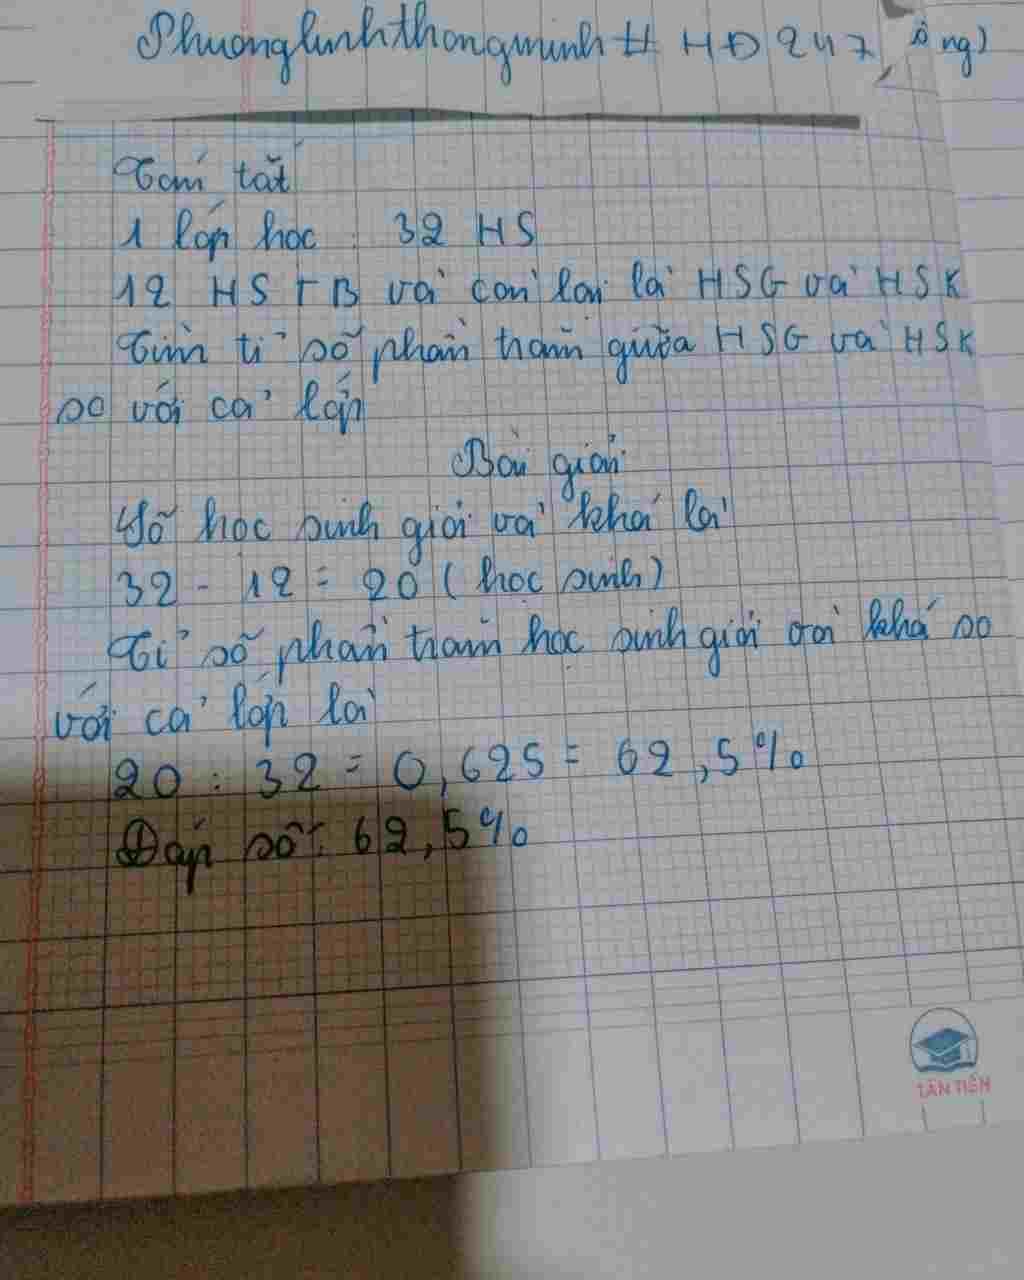 Phuonglinhthongminh # HĐ 247 ông)
Tóm tắt
1 lớp học : 32 HS
12 HS TB và còn lại là HSG và HSK
Tìm tỉ số phần trăm giữa HSG và HSK
so với cả lớp
Bài giải
Số học sinh giỏi và khá là
32 - 12 = 20 ( học sinh )
Tỉ số phần trăm học sinh giỏi và khá so
với cả lớp là
20 : 32 = 0,625 = 62,5%
Đáp số: 62,5%
TÂN TIẾN